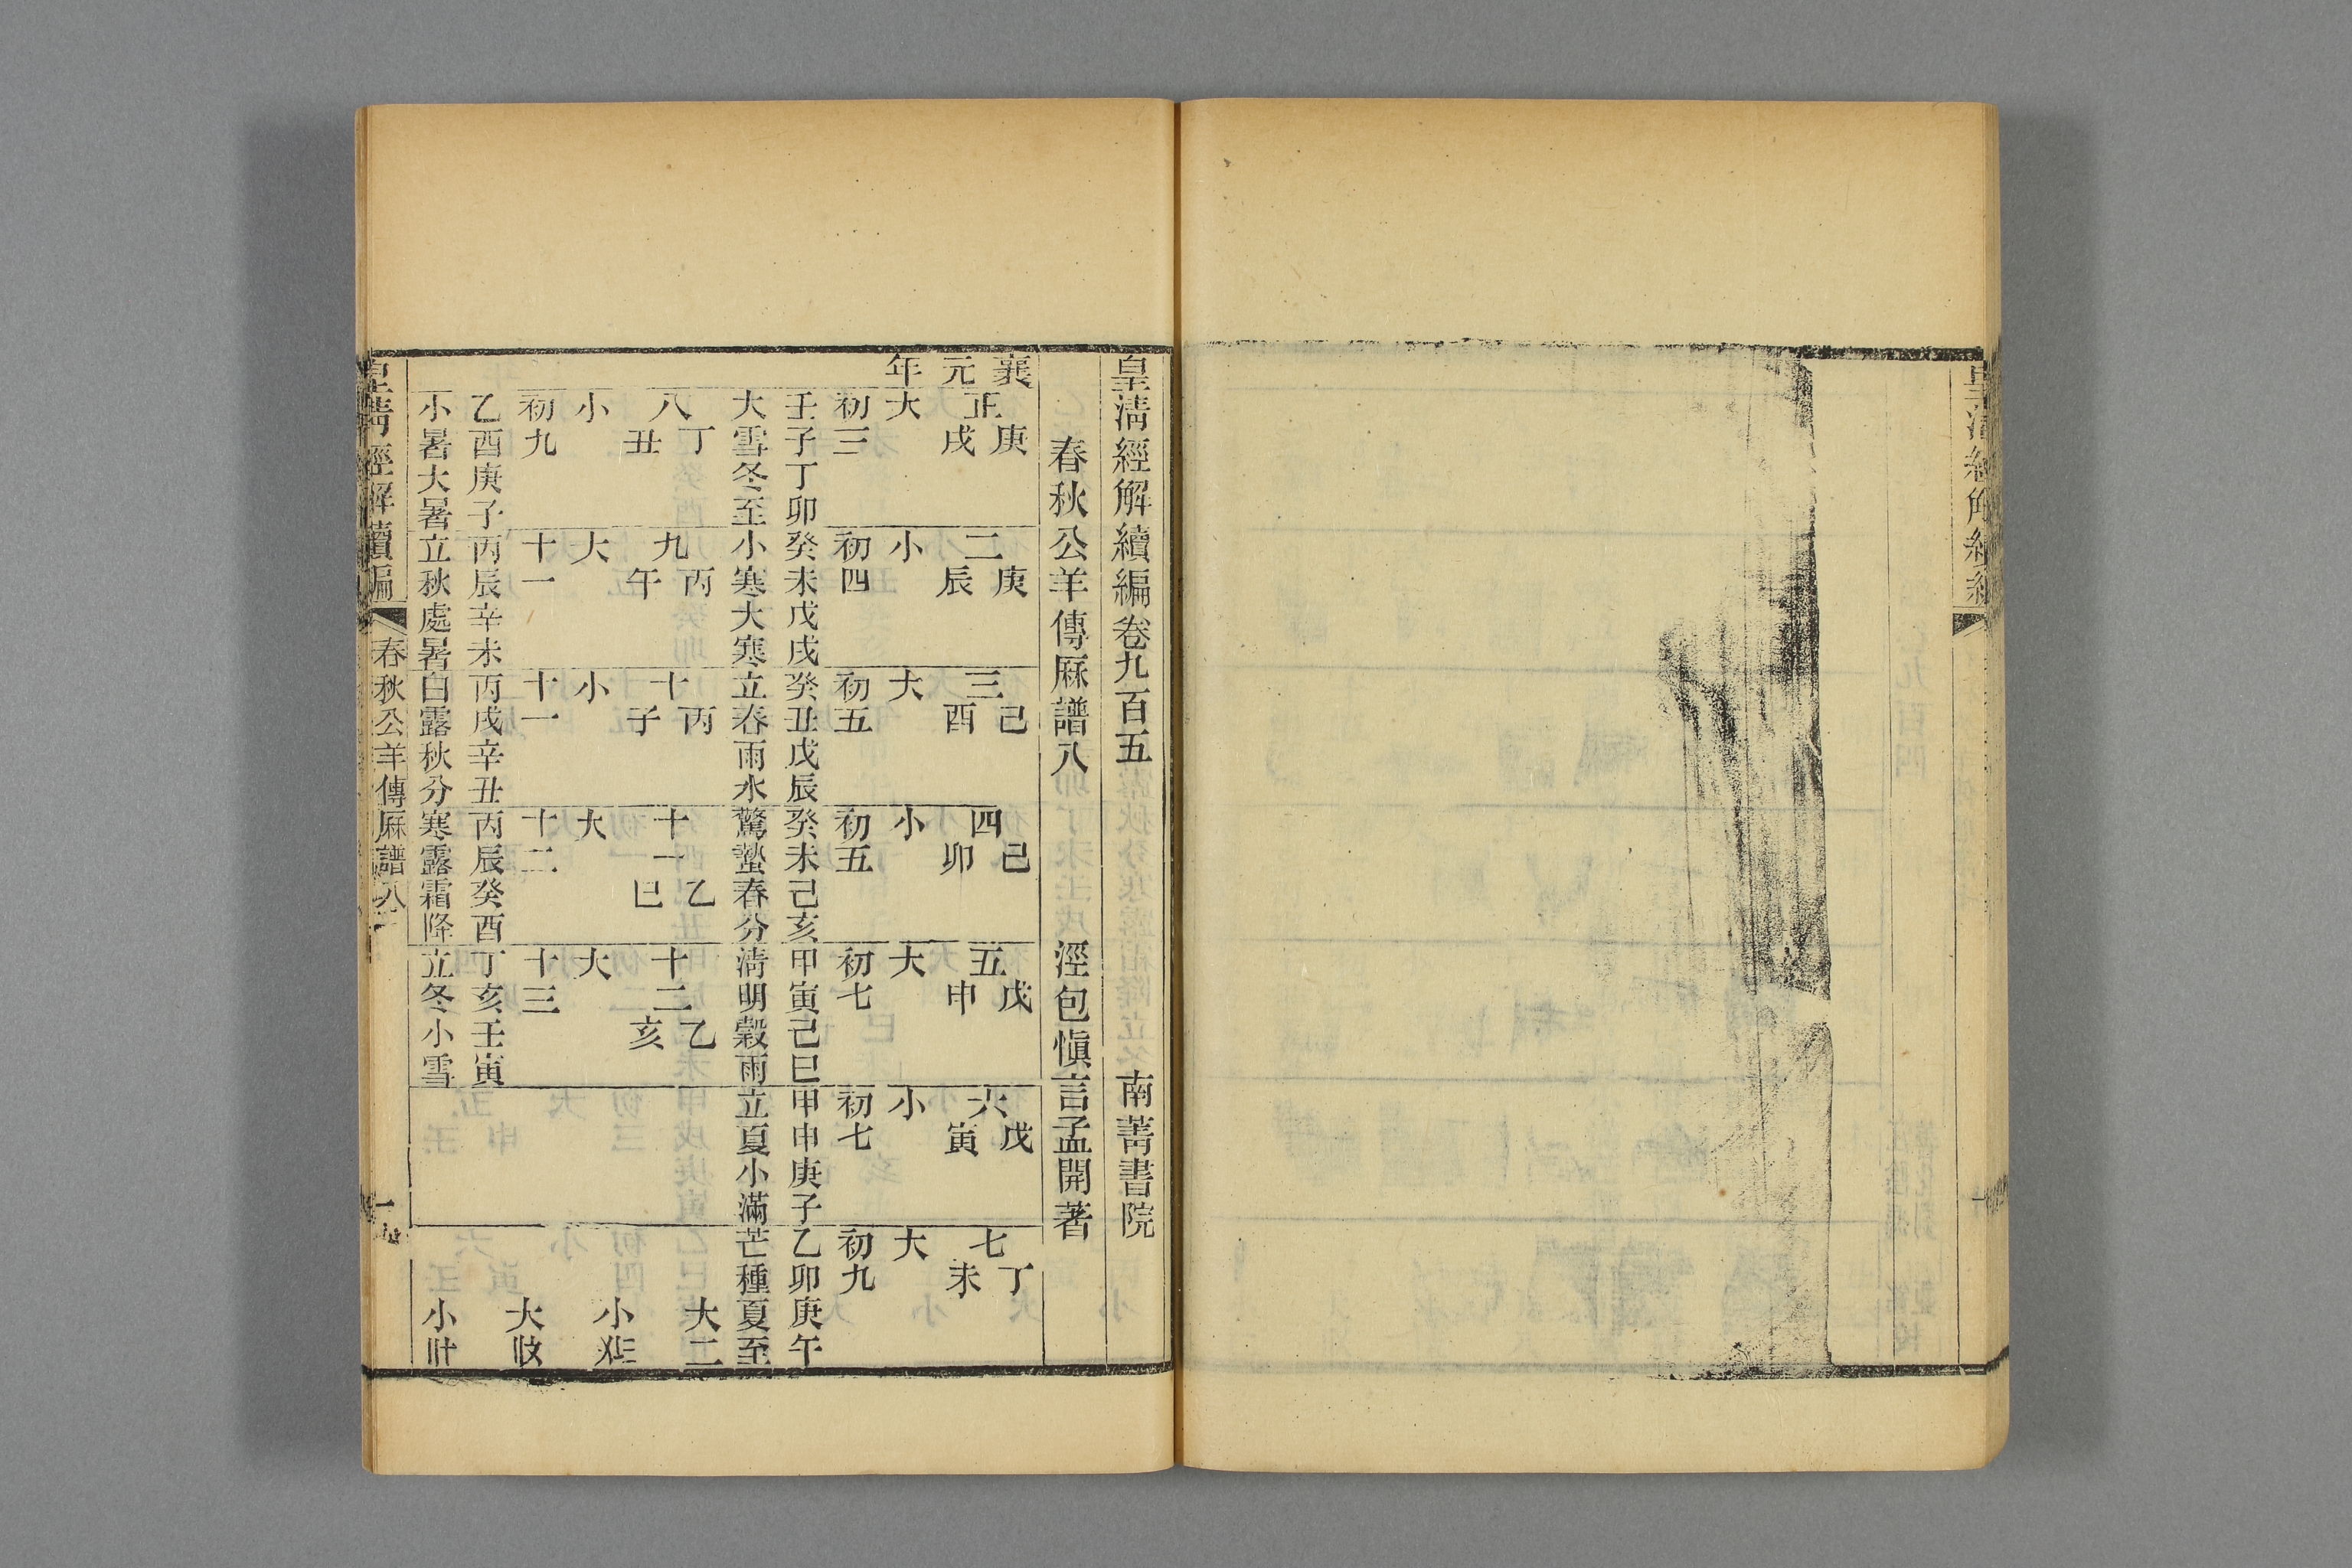 皇清經解續編卷九百五
南菁書院
春秋公羊傳厤譜八
涇包愼言孟開著
襄元年
正庚戌
大
初三
壬子丁卯
大雪冬至
二庚辰
小
初四
癸未戊戌
小寒大寒
三己酉
大
初五
癸丑戊辰
立春雨水
四己卯
小
初五
癸未己亥
驚蟄春分
五戊申
大
初七
甲寅己巳
清明穀雨
六戊寅
小
初七
甲申庚子
立夏小滿
七丁未
大
初九
乙卯庚午
芒種夏至
八丁丑
小
初九
乙酉庚子
小暑大暑
九丙午
大
十一
丙辰辛未
立秋處暑
十丙子
小
十一
丙戌辛丑
白露秋分
十一乙巳
大
十二
丙辰癸酉
寒露霜降
十二乙亥
大
十三
丁亥壬寅
立冬小雪
大二
小
大
小
皇清經解續編
春秋公羊傳厤譜八
一
皇清經解續編